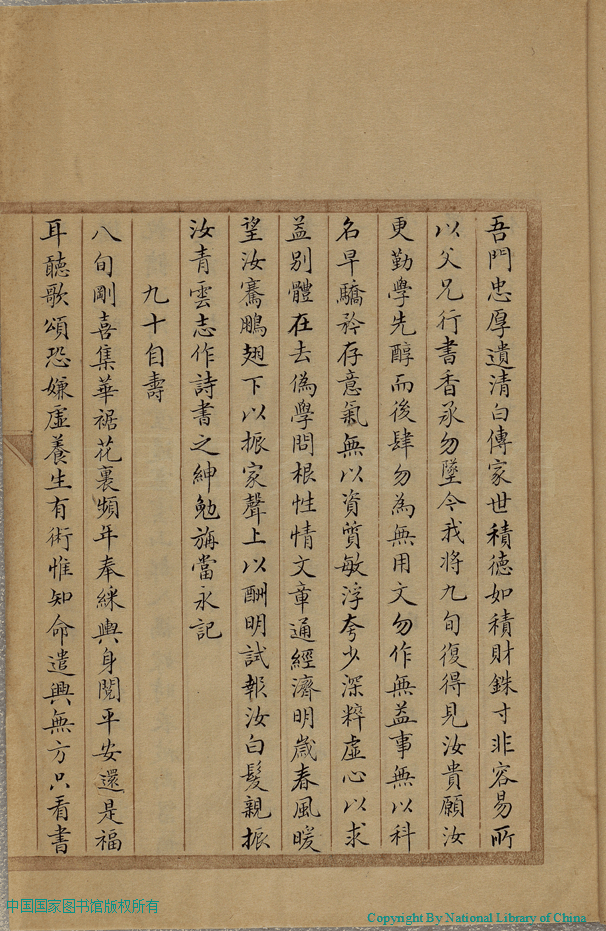 吾門忠厚遺清白傳家世積德如積財銖寸非容易所
以父兄行書香承勿墜今我將九旬復得見汝貴願汝
更勤學先醇而後肆勿為無用文勿作無益事無以科
名早驕矜存意氣無以資質敏浮夸少深粹虛心以求
益別體在去偽學問根性情文章通經濟明歲春風暖
望汝騫鵬翅下以振家聲上以酬明試報汝白髮親振
汝青雲志作詩書之紳勉旃當永記
九十自壽
八旬剛喜集華裾花裏頻年奉綵輿身閱平安還是福
耳聽歌頌恐嫌虛養生有術惟知命遣興無方只看書
中国国家图书馆版权所有
Copyright By National Library of China